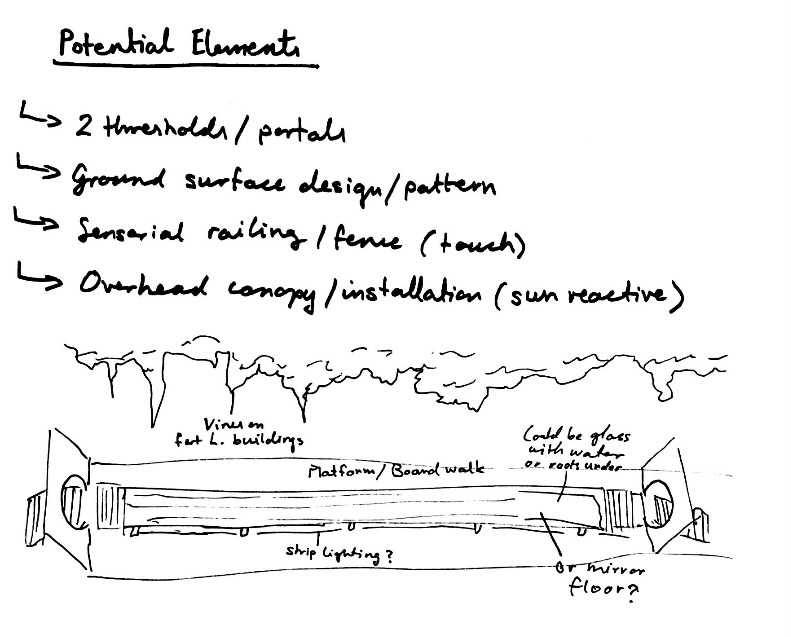 Potential Elements
2 thresholds/portals
Ground surface design/pattern
Senserial railing/fence (touch)
Overhead canopy/installation (sun reactive)
Vines on
L. buildings
Could be glass
with water
or roots under
Platform/Boardwalk
strip lighting?
Or mirror
floor?